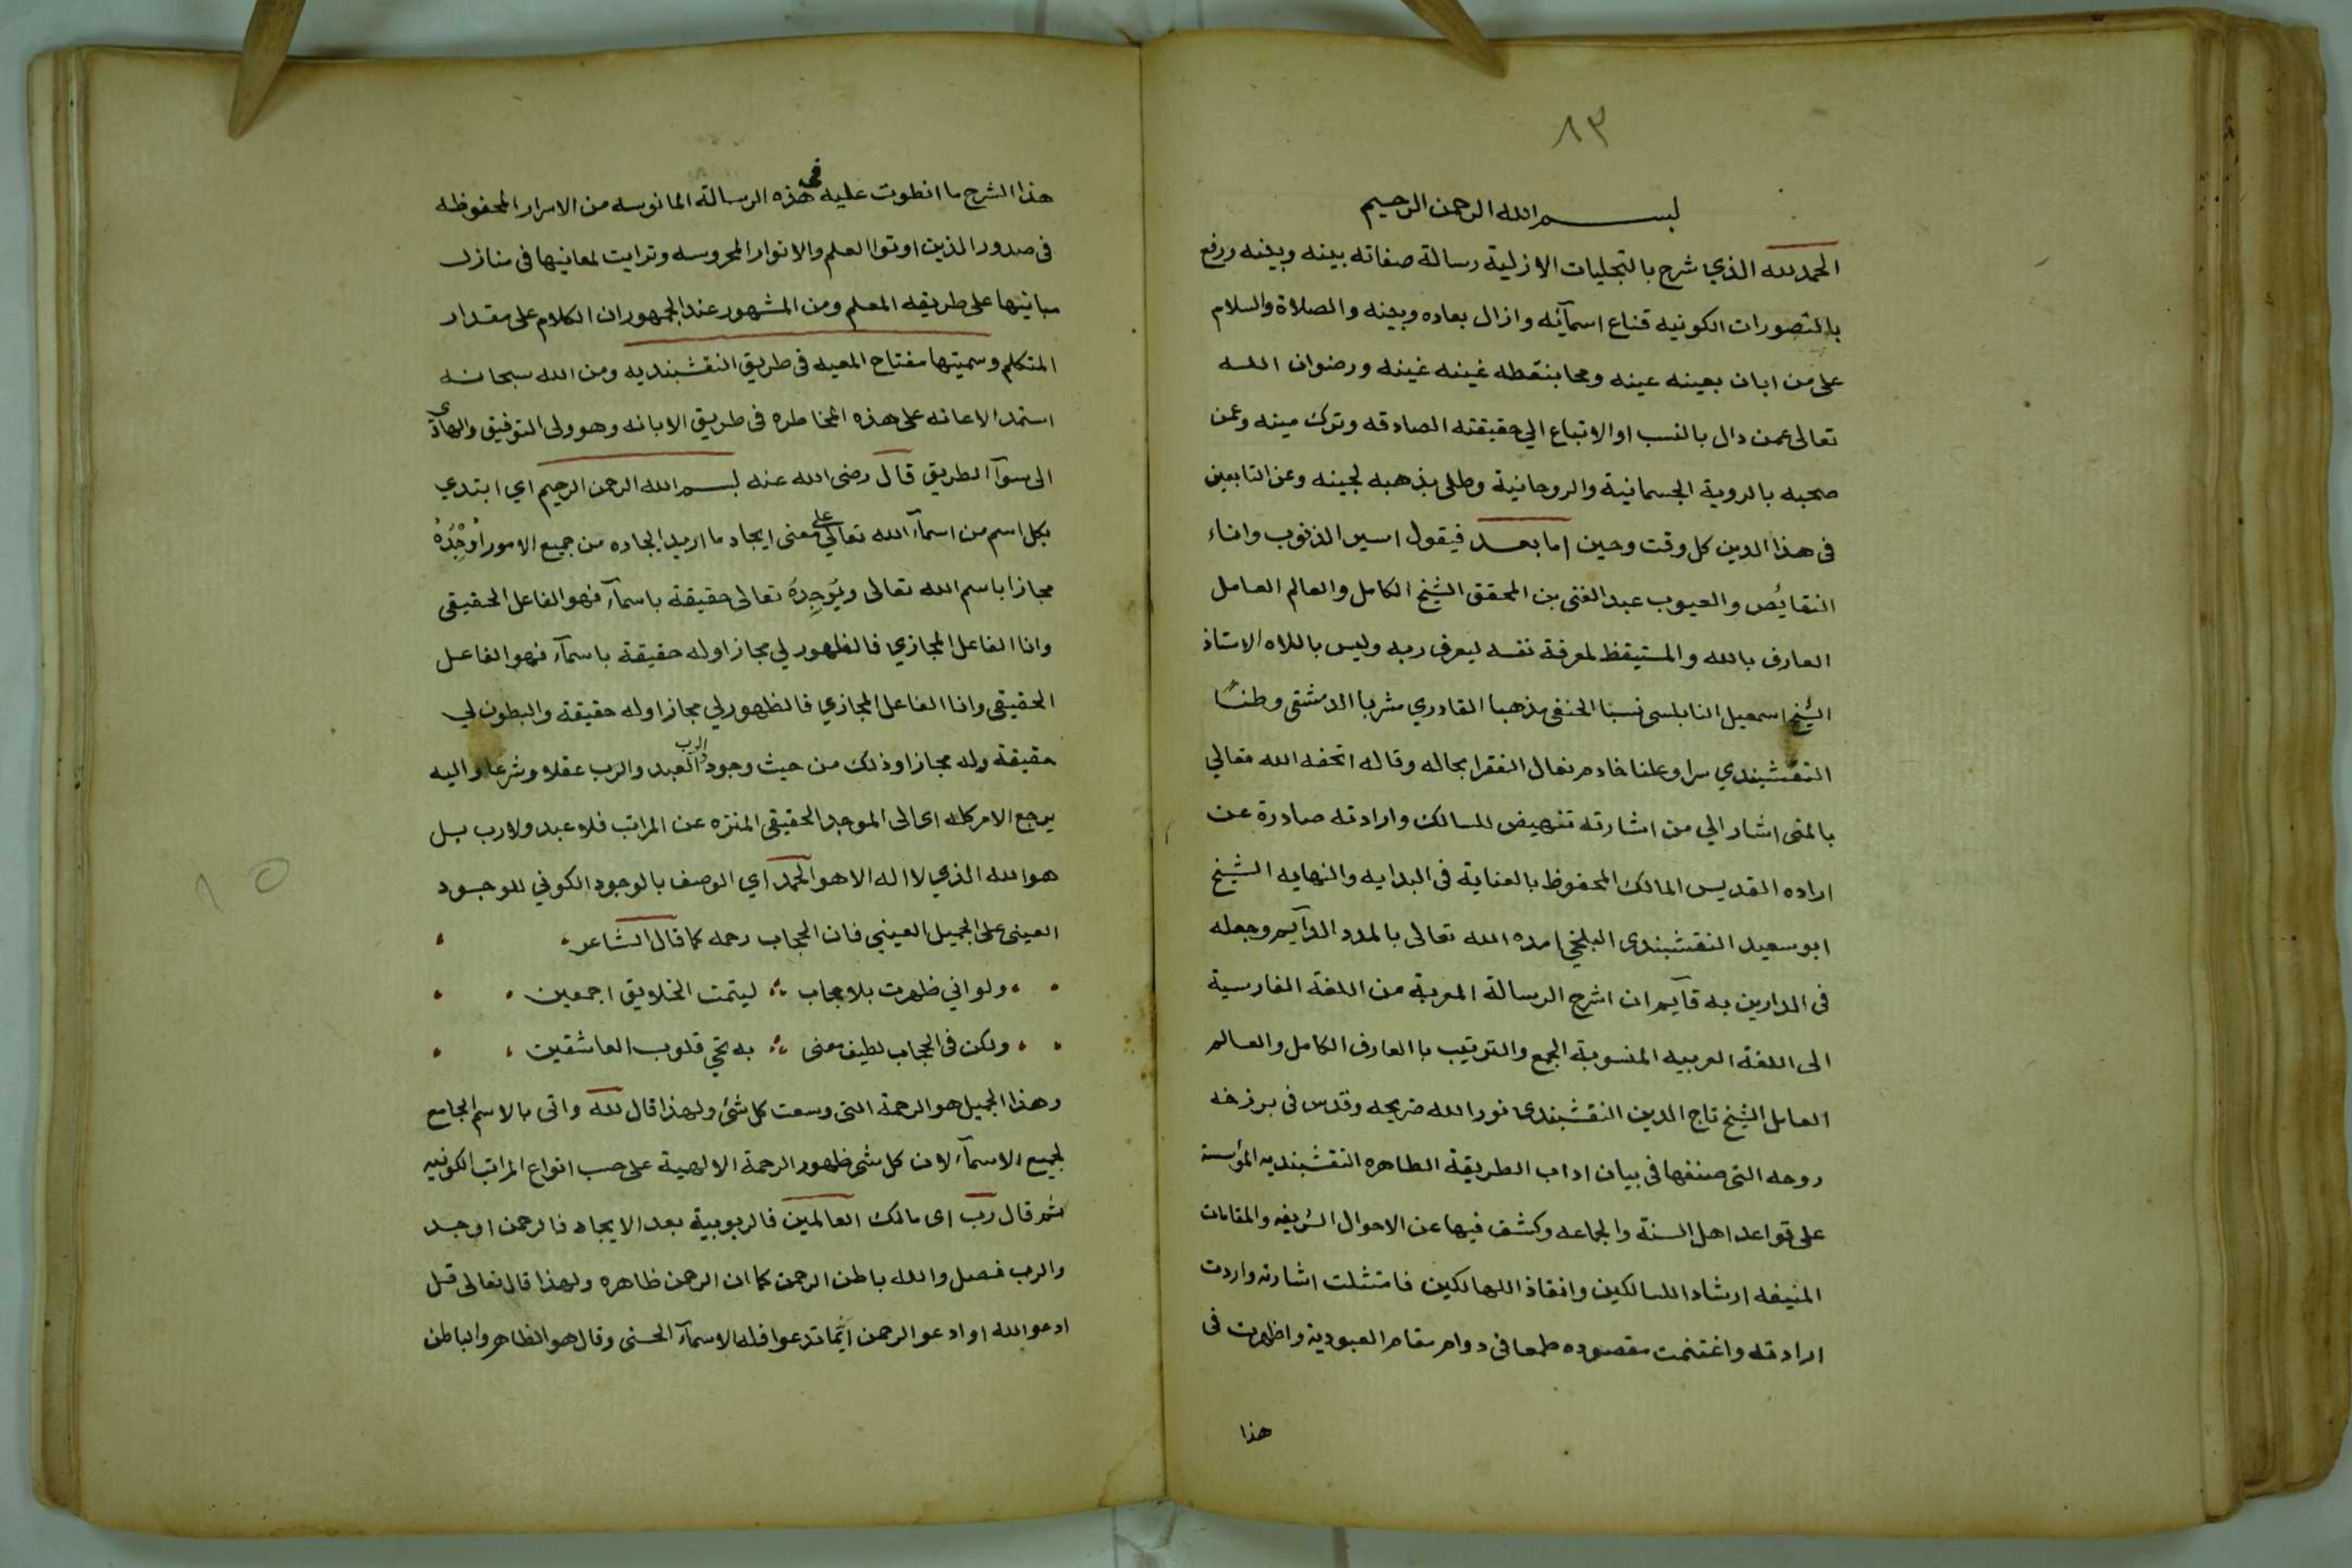 ٨٣
بسم الله الرحمن الرحيم
الحمد لله الذي شرح بالتجليات الازلية رسالة صفاته بينه وبينه ورفع
بالتصورات الكونيه قناع اسمآئه وازال بعاده وبينه والصلاة والسلام
على من ابان بعينه عينه ومحا بنقطه غينه غينه ورضوان الله
تعالى عمن دال بالنسب او الاتباع الي حقيقته الصادقه وترك مينه وعمن
صحبه بالروية الجسمانية والروحانية وطلى بذهبه لجينه وعن التابعين
فى هذا الدين كل وقت وحين اما بعد فيقول اسير الذنوب واناء
النقايص والعيوب عبد الغنى بن المحقق الشيخ الكامل والعالم العامل
العارف بالله والمستيقظ لمعرفة نفسه ليعرف ربه وليس باللاه الاستاذ
الشيخ اسمعيل النابلسى نسبا الحنفى مذهبا القادري مشربا الدمشقى وطنًا
النقشبندي سرا وعلنا خادم نعال الفقرا بحاله وقاله اتحفه الله تعالي
بالمنى اشار الي من اشارته تنهيض للسالك وارادته صادرة عن
اراده القديس المالك المحفوظ بالعناية فى البدايه والنهايه الشيخ
ابو سعيد النقشبندى البلخي امده الله تعالى بالمدد الدآيم وجعله
فى الدارين به قآيم ان اشرح الرسالة المعربة من اللغة الفارسية
الى اللغة العربيه المنسوبة الجمع والترتيب با العارف الكامل والعالم
العامل الشيخ تاج الدين النقشبندى نور الله ضريحه وقدس فى برزخه
روحه التى صنفها فى بيان اداب الطريقة الطاهره النقشبنديه المؤسسة
على قواعد اهل السنة والجماعه وكشف فيها عن الاحوال الشريفه والمقامات
المنيفه ارشادا للسالكين وانقاذا للهالكين فامتثلت اشارته واردت
ارادته واغتنمت مقصوده طمعا فى دوام مقام العبودية واظهرت فى
هذا
هذا الشرح ما انطوت عليه فى هذه الرسالة المانوسه من الاسرار المحفوظه
فى صدور الذين اوتوا العلم والانوار المحروسه وترايت لمعانيها فى منازل
مبانيها على طريقه المعلم ومن المشهور عند الجمهور ان الكلام على مقدار
المتكلم وسميتها مفتاح المعيه فى طريق النقشبنديه ومن الله سبحانه
استمد الاعانه على هذه المخاطره فى طريق الابانه وهو ولى التوفيق والهادى
الى سوآ الطريق قال رضى الله عنه بسم الله الرحمن الرحيم اي ابتدي
بكل اسم من اسمآء الله تعالي على معنى ايجاد ما اريد ايجاده من جميع الامور اُوْجِدُهُ
مجازا باسم الله تعالى ويُوَجِدِهُ تعالى حقيقة باسمآء فهو الفاعل الحقيقى
وانا الفاعل المجازي فالظهور لي مجازا وله حقيقة باسمآء فهو الفاعل
الحقيقى وانا الفاعل المجازي فالظهور لي مجازا وله حقيقة والبطون لي
حقيقة وله مجازا وذلك من حيث وجود الرب العبد والرب عقلا وشرعا واليه
يرجع الامر كله اى الى الموجد الحقيقى المنزه عن المراتب فلا عبد ولا رب بل
هو الله الذي لا اله الا هو الحمد اي الوصف بالوجود الكوني للوجود
العينى على الجميل العيني فان الحجاب رحمه كما قال الشاعر
ولو اني ظهرت بلا حجاب ؞ ليتمت الخلايق اجمعين
ولكن فى الحجاب لطيف معنى ؞ به تحي قلوب العاشقين
وهذا الجميل هو الرحمة التى وسعت كل شئ ولهذا قال لله واتى بالاسم الجامع
لجميع الاسمآء لان كل شى ظهور الرحمة الالهية على حسب انواع المراتب الكونيه
ثم قال رب اى مالك العالمين فالربوبية بعد الايجاد فالرحمن اوجد
والرب فصل والله باطن الرحمن كما ان الرحمن ظاهره ولهذا قال تعالى قل
ادعو الله او ادعو الرحمن ايَّما تدعوا فله الاسمآء الحسنى وقال هو الظاهر والباطن